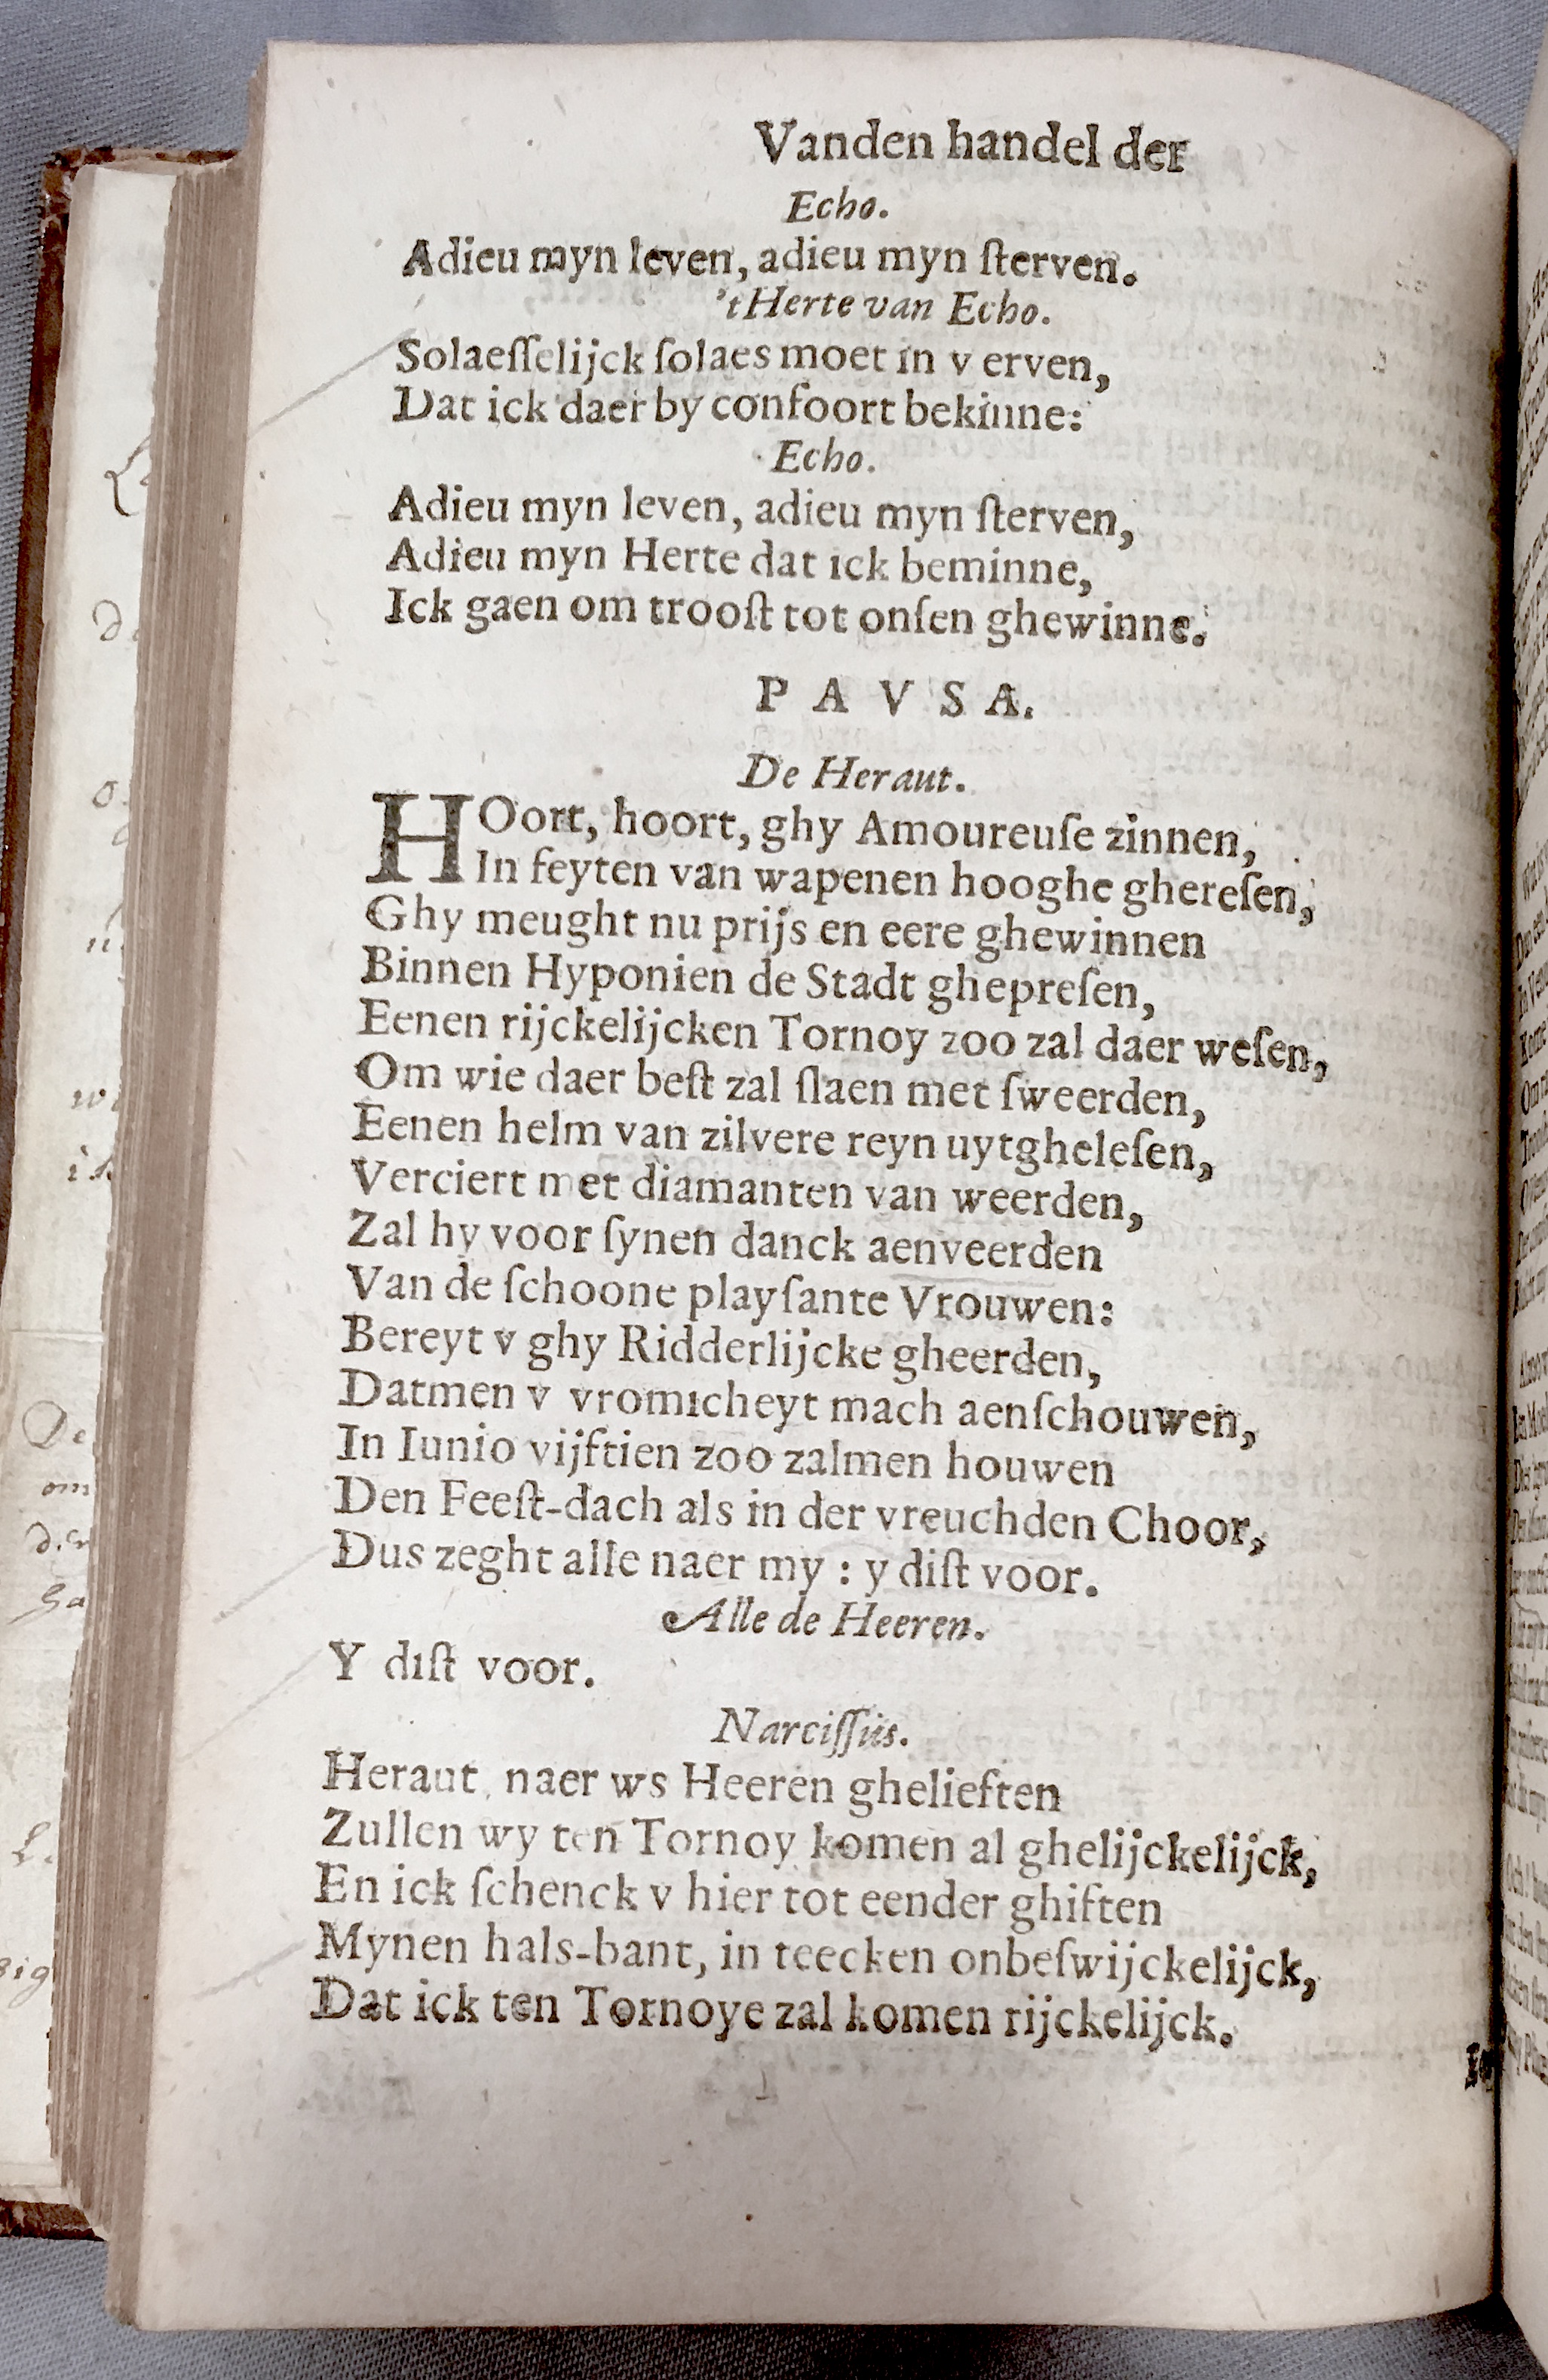 Vanden handel der
Echo.
Adieu myn leven, adieu myn ſterven.
'tHerte van Echo.
Solaeſſelijck ſolaes moet in v erven,
Dat ick daer by confoort bekinne:
Echo.
Adieu myn leven, adieu myn ſterven,
Adieu myn Herte dat ick beminne,
Ick gaen om trooſt tot onſen ghewinne.
PAVSA.
De Heraut.
HOort, hoort, ghy Amoureuſe zinnen,
In feyten van wapenen hooghe ghereſen,
Ghy meught nu prijs en eere ghewinnen
Binnen Hyponien de Stadt ghepreſen,
Eenen rijckelijcken Tornoy zoo zal daer weſen,
Om wie daer beſt zal ſlaen met ſweerden,
Eenen helm van zilvere reyn uytgheleſen,
Verciert met diamanten van weerden,
Zal hy voor ſynen danck aenveerden
Van de ſchoone playſante Vrouwen:
Bereyt v ghy Ridderlijcke gheerden,
Datmen v vromicheyt mach aenſchouwen,
In Iunio vijftien zoo zalmen houwen
Den Feeſt-dach als in der vreuchden Choor,
Dus zeght alle naer my : y diſt voor.
Alle de Heeren.
Y diſt voor.
Narciſſus.
Heraut, naer ws Heeren ghelieften
Zullen wy ten Tornoy komen al ghelijckelijck,
En ick ſchenck v hier tot eender ghiften
Mynen hals-bant, in teecken onbeſwijckelijck,
Dat ick ten Tornoye zal komen rijckelijck.